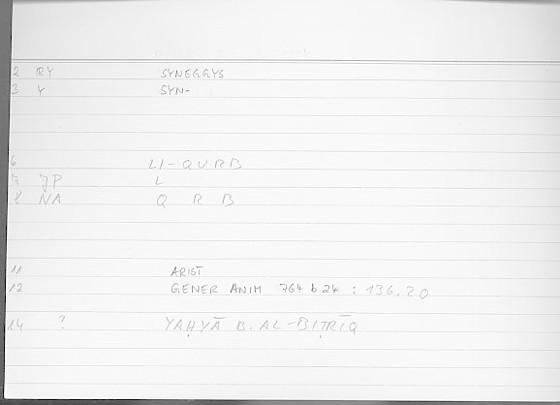 2 RY SYNEGGYS
3 Y SYN-
6 LI-QURB
7 JP L
8 NA Q R B
11 ARIST
12 GENER ANIM 764 b 24 : 136.20
14 ? YAḤYĀ B. AL-BIṬRĪQ